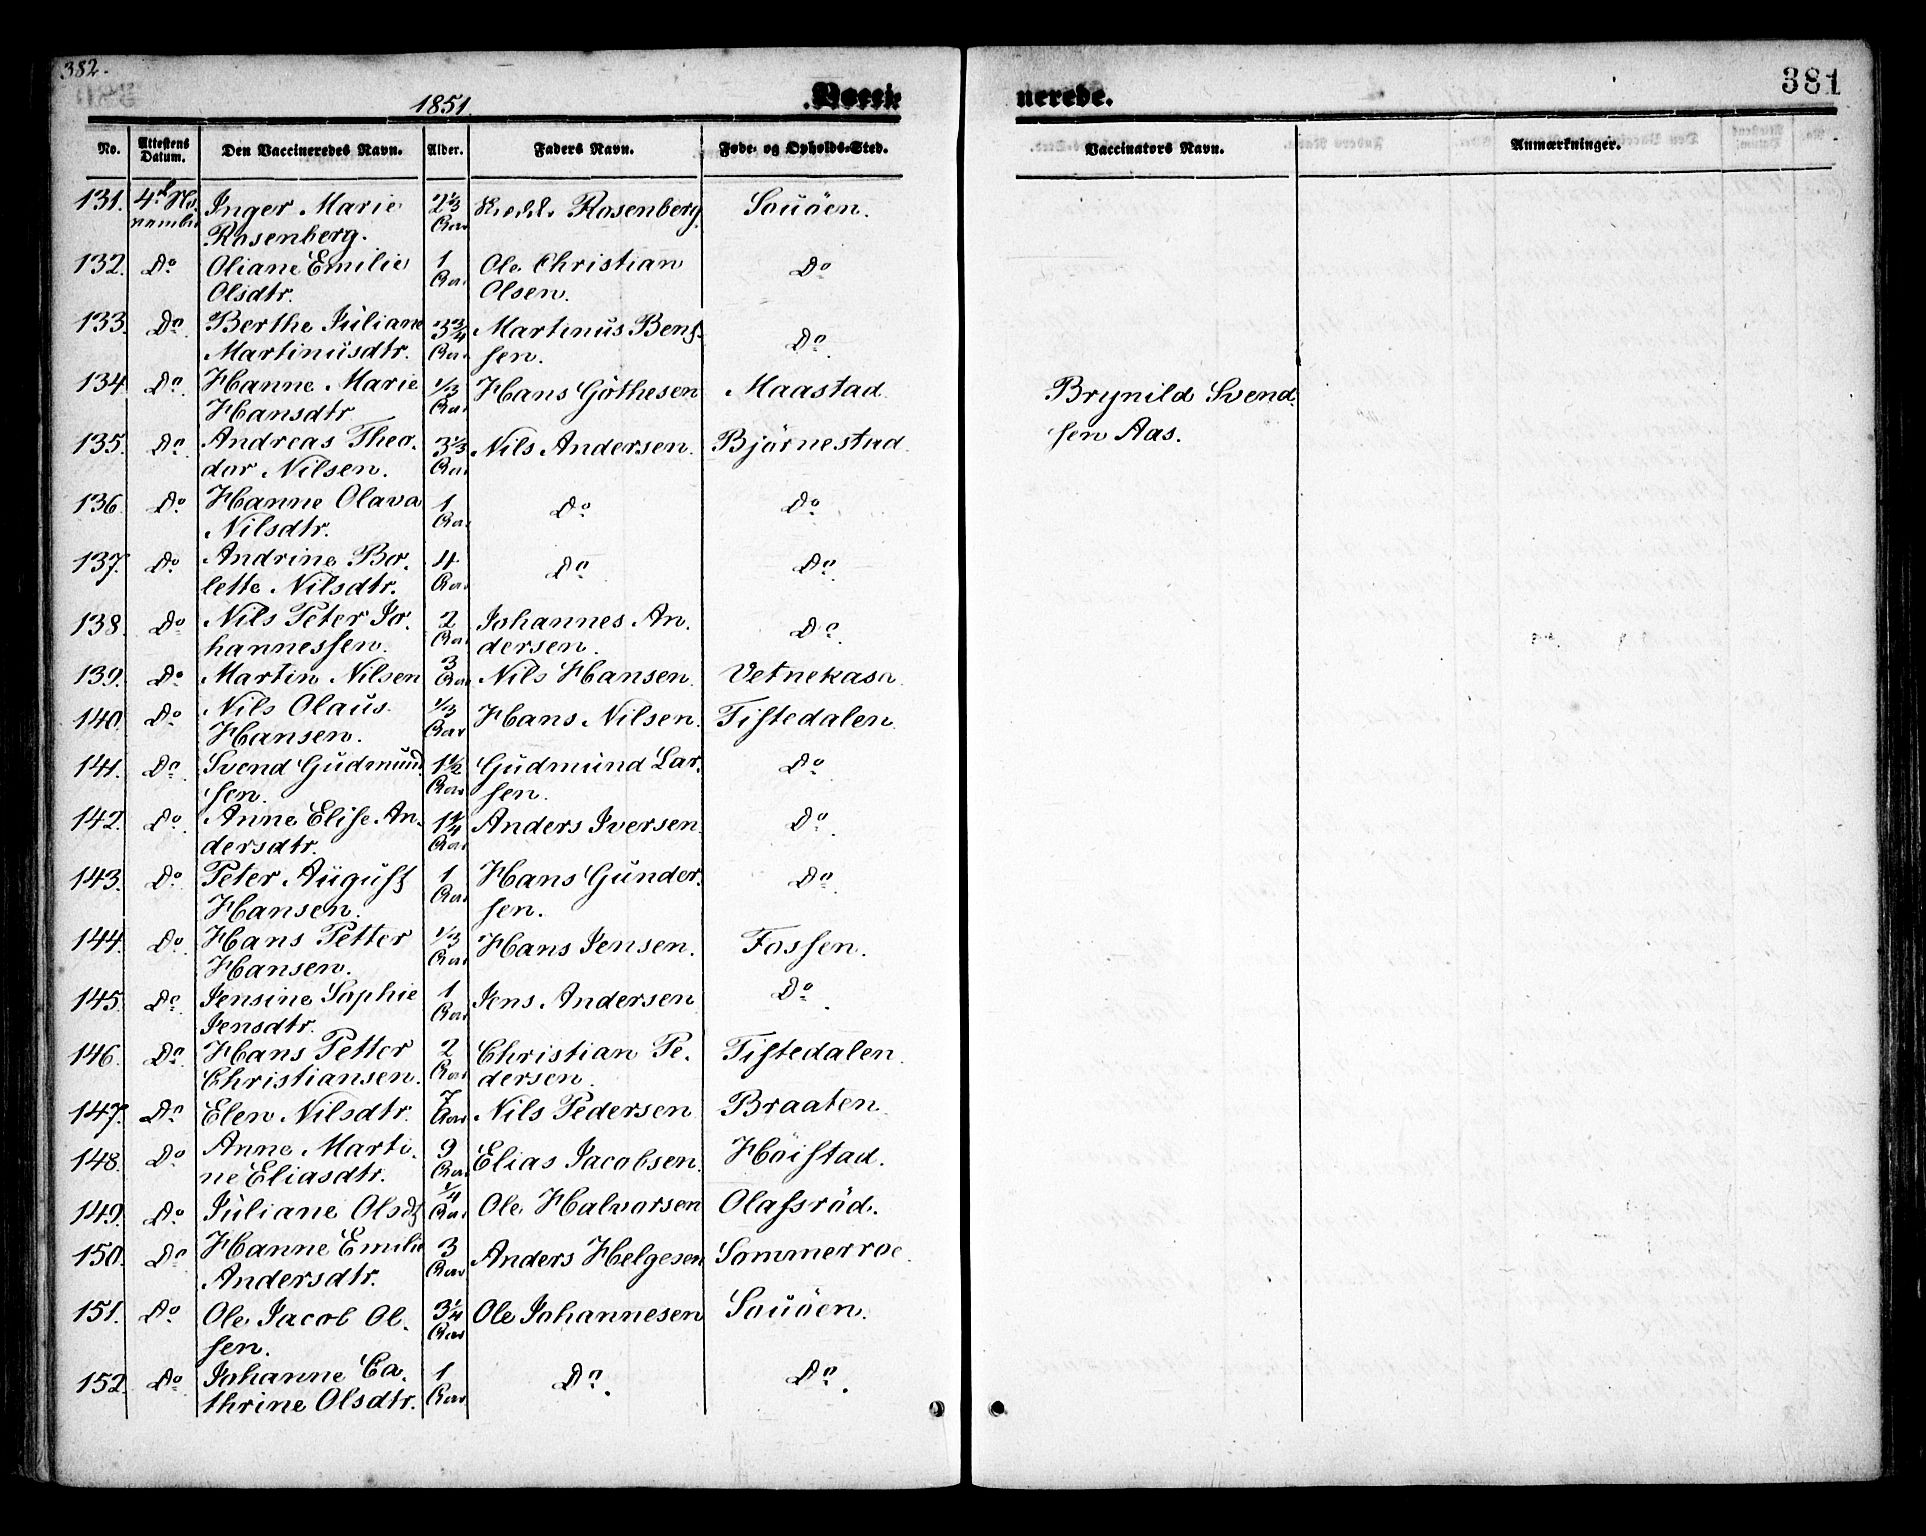 382.
1851.
Vacci
nerede.
381
No. Attestens Datum. Den Vaccineredes Navn. Alder. Faders Navn. Føde- og Opholds-Sted. Vaccinators Navn. Anmærkninger.
131. 4de No- Inger Marie 2 1/3 Rosenberg. Souöen.
vember Rosenberg. Aar
132. Do Oliane Emilie 1 Ole Christian Do
Olsdtr. Aar Olsen.
133. Do Berthe Juliane 3 3/4 Martinus Bent- Do
Martinusdtr. Aar sen.
134 Do Hanne Marie 1/3 Hans Göthesen Maastad. Brynild Svend-
Hansdtr Aar
135. Do Andreas Theo- 3 1/3 Nils Andersen. Björnestad. sen Aas.
dor Nilsen. Aar
136. Do Hanne Olava 1 Do Do
Nilsdtr. Aar
137. Do Andrine Bo- 4 Do Do
lette Nilsdtr. Aar
138. Do Nils Peter Jo- 2 Johannes An- Do
hannessen. Aar dersen.
139. Do Martin Nilsen 3 Aar Nils Hansen. Vetnekasa
140. Do Nils Olaus 1/3 Hans Nilsen. Tistedalen.
Hansen. Aar
141. Do Svend Gudmund- 1 1/2 Gudmund Lar- Do
sen. Aar sen.
142. Do Anne Elise An- 1 1/4 Anders Iversen. Do
dersdtr. Aar
143. Do Peter August 1 Hans Gunder- Do
Hansen. Aar sen.
144. Do Hans Petter 1/3 Hans Jensen. Fossen.
Hansen. Aar
145. Do Jensine Sophie 1 Jens Andersen Do
Jensdtr. Aar
146. Do Hans Petter 2 Christian Pe- Tistedalen.
Christiansen. Aar dersen.
147. Do Elen Nilsdtr. 7 Aar Nils Pedersen Braaten.
148. Do Anne Marti- 9 Elias Jacobsen. Höistad.
ne Eliasdtr. Aar
149. Do Juliane Olsdt 1/4 Aar Ole Halvorsen Olafsröd.
150. Do Hanne Emilie 3 Anders Helgesen Sommerroe.
Andersdtr. Aar
151. Do Ole Jacob Ol- 3 1/4 Ole Johannesen Souöen.
sen. Aar
152. Do Johanne Ca- 1 Do. Do.
thrine Olsdtr. Aar